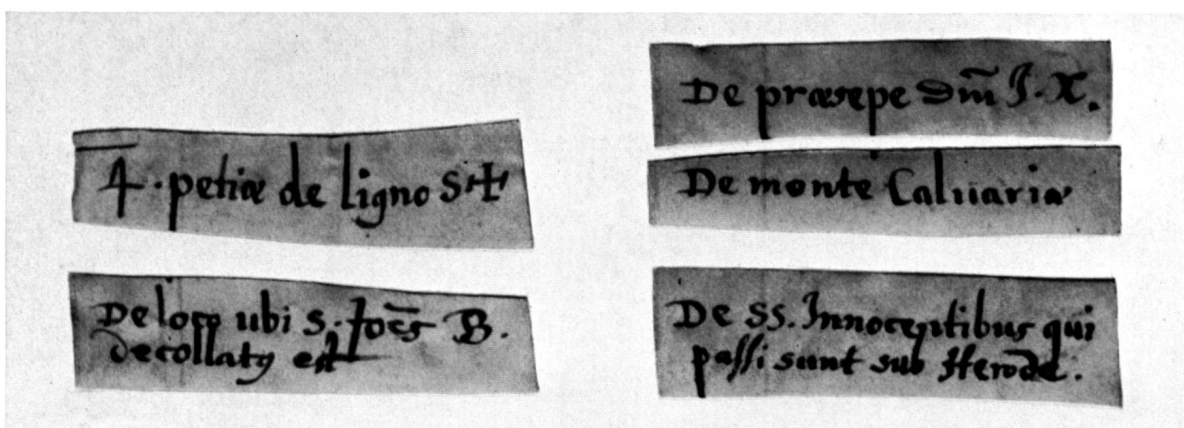 4 · petiæ de ligno S ✝
De loco ubi S. Joēs B.
decollatꝰ est
De præsepe Dm̄ J. X.
De monte Caluariæ
De SS. Innocentibus qui
passi sunt sub Herode.